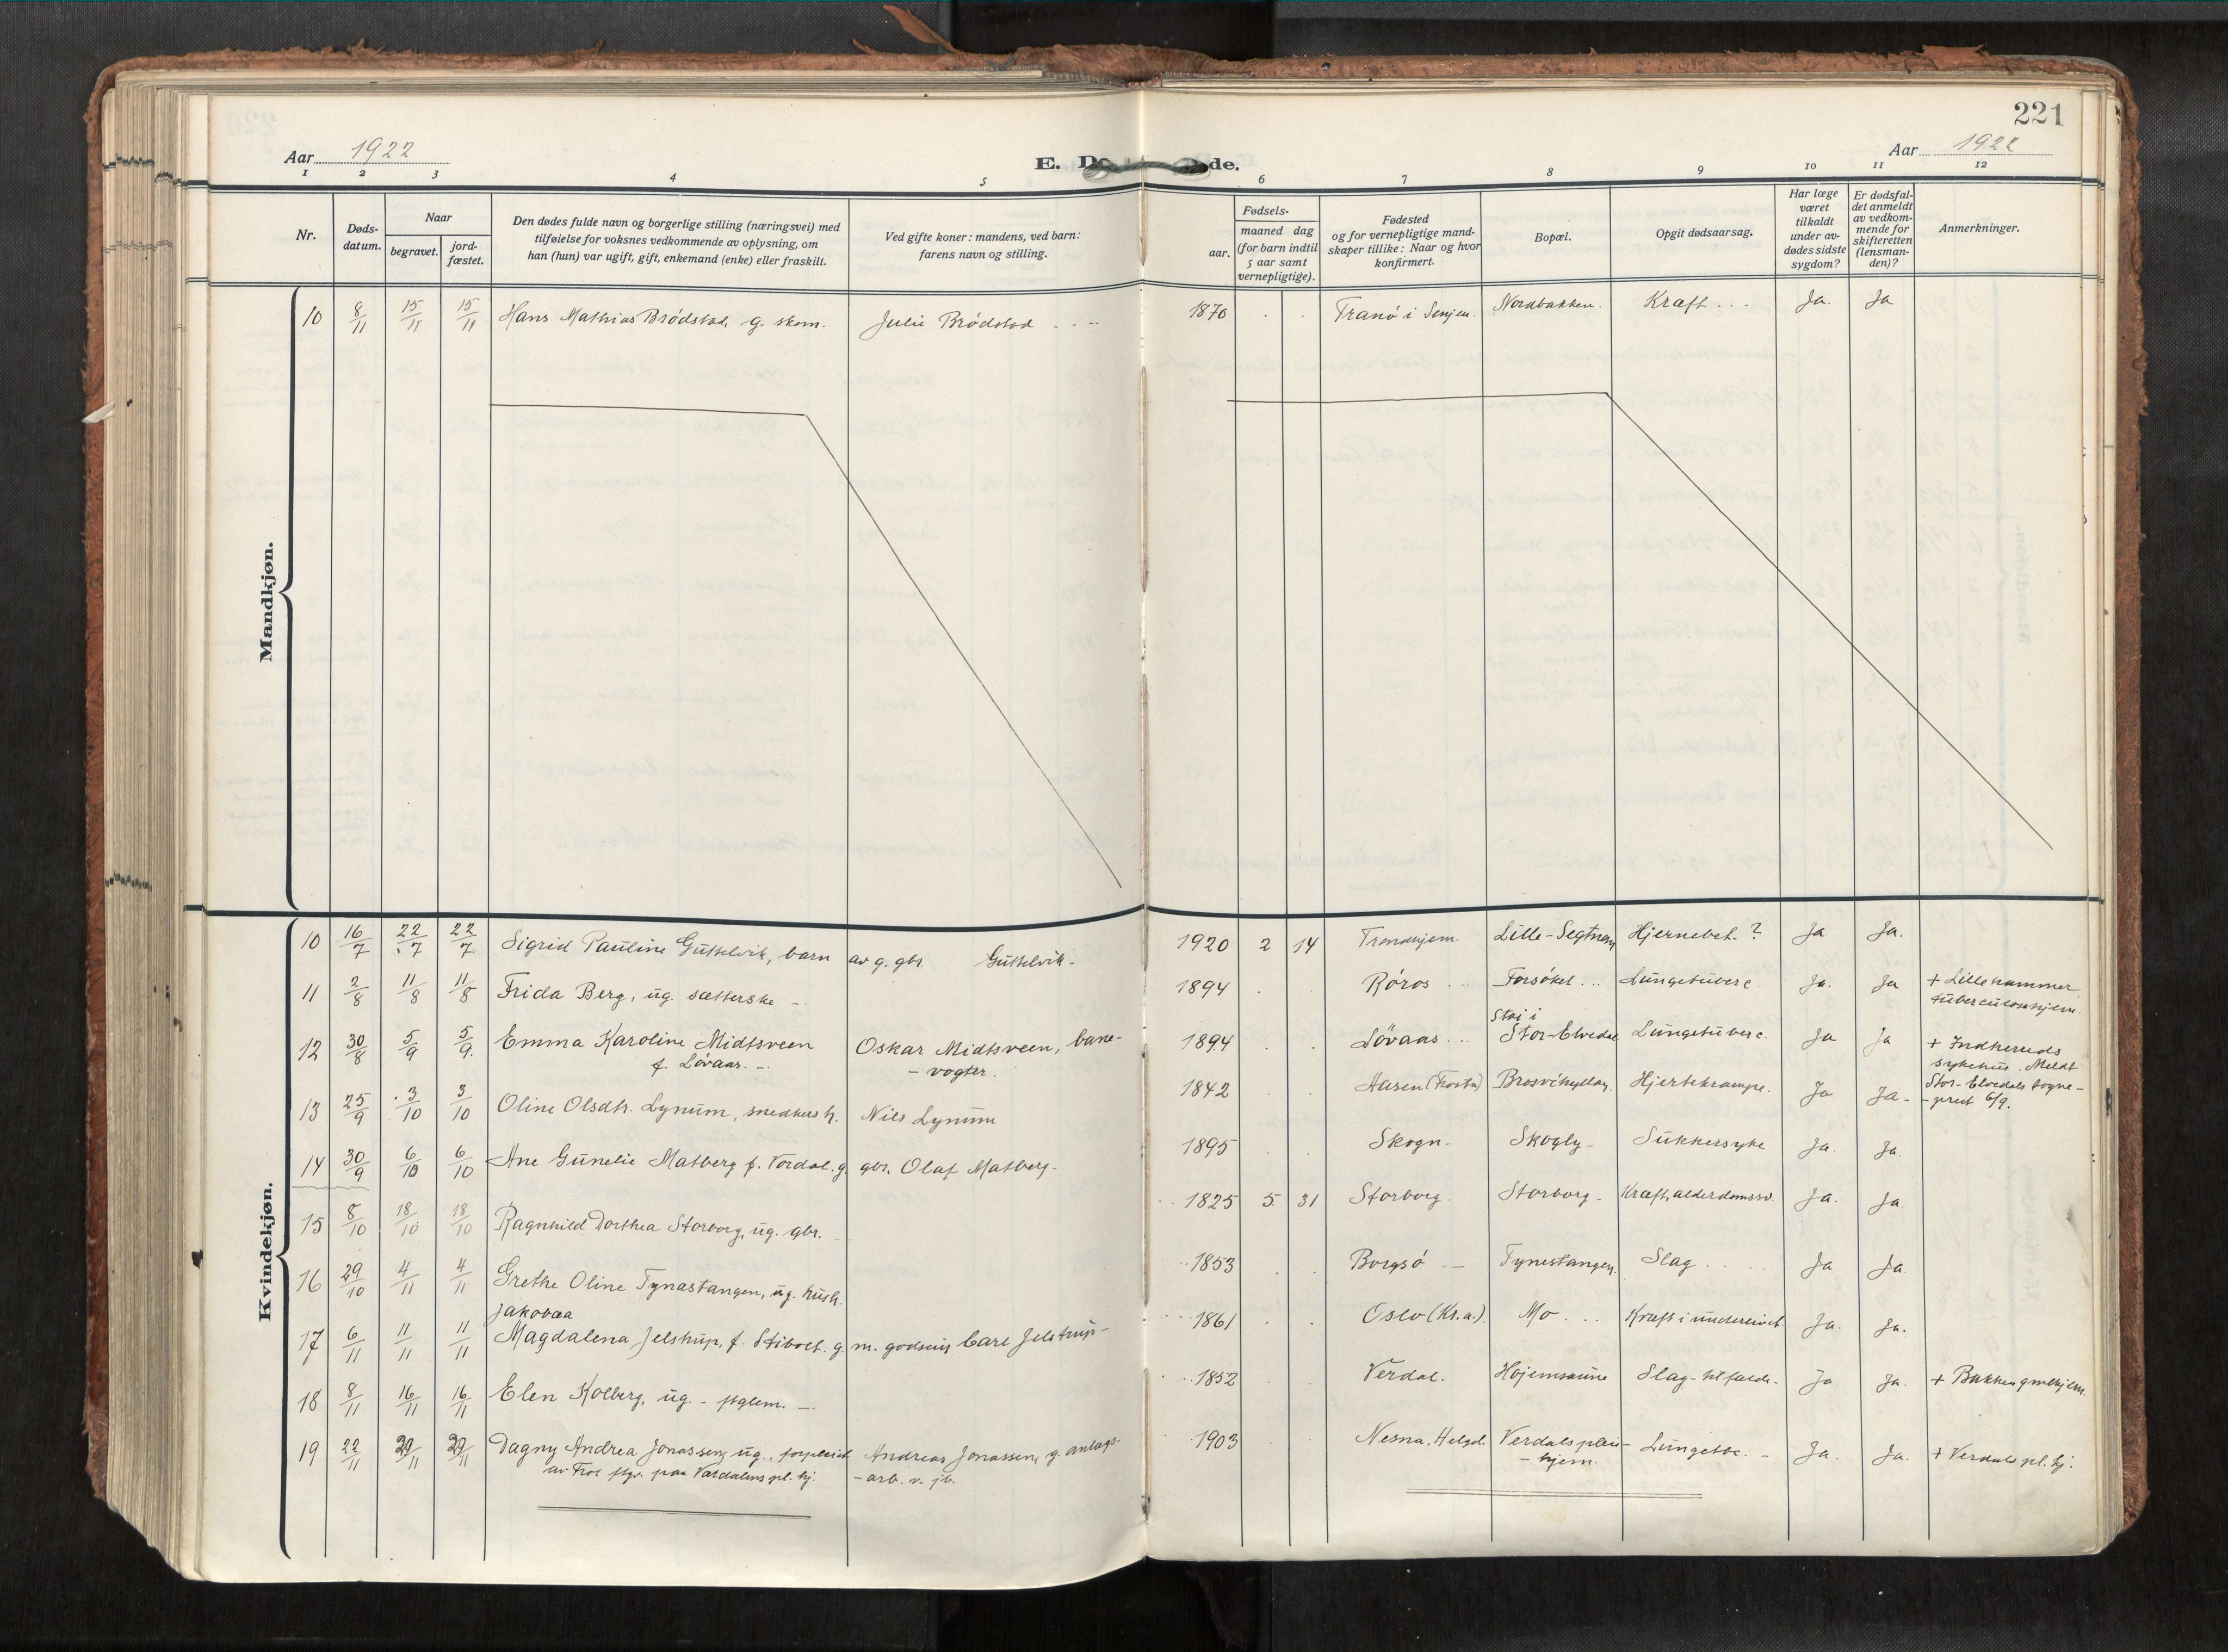 221
Aar 1922
E. Dø
de.
Aar 1922
1 2 3 4 5 6 7 8 9 10 11 12
Nr.
Døds-
datum.
Naar
begravet.
jord-
fæstet.
Den dødes fulde navn og borgerlige stilling (næringsvei) med
tilføielse for voksnes vedkommende av oplysning, om
han (hun) var ugift, gift, enkemand (enke) eller fraskilt.
Ved gifte koner: mandens, ved barn:
farens navn og stilling.
Fødsels-
aar.
maaned dag
(for barn indtil
5 aar samt
vernepligtige).
Fødested
og for vernepligtige mand-
skaper tillike: Naar og hvor
konfirmert.
Bopæl.
Opgit dødsaarsag.
Har læge
været
tilkaldt
under av-
dødes sidste
sygdom?
Er dødsfal-
det anmeldt
av vedkom-
mende for
skifteretten
(lensman-
den)?
Anmerkninger.
Mandkjøn.
10 8/11 15/11 15/11 Hans Mathias Brødstad, g. skom. Julie Brødstad 1870 Tranø i Senjen. Nordbakken. Kræft Ja. Ja
Kvindekjøn.
10 16/7 22/7 22/7 Sigrid Pauline Guttelvik, barn av g. gbr. Guttelvik - 1920 2 14 Trondhjem. Lille-Segtnan Hjernebet. ? Ja Ja.
11 2/8 11/8 11/8 Frida Berg, ug. sætterske - 1894 Røros Forsøket Lungetuberc. Ja. Ja + Lillehammer
tuberculosehjem.
12 30/8 5/9 5/9. Emma Karoline Midtsveen Oskar Midtsveen, bane- 1894 Løvaas Stai i
Stor-Elvedal Lungetuberc. Ja Ja + Indherreds
f. Løvaas. - - vogter. sykehus. Meldt
Stor-Elvedals sogne-
- prest 6/9.
13 25/9 3/10 3/10 Oline Olsdtr. Lynum, snedkers h. Nils Lynum 1842 Aasen (Frosta) Hjertekrampe. Ja Ja -
14 30/9 6/10 6/10 Ane Gunelie Matberg f. Vordal. g. gbr. Olaf Matberg - 1895 Skogn - Skogly - Sukkersyke Ja. Ja.
15 8/10 18/10 18/10 Ragnhild Dorthea Storborg, ug. gbr. 1825 5 31 Storborg. Storborg - Kræft, alderdomssv. Ja. Ja.
16 29/10 4/11 4/11 Grethe Oline Tynastangen, ug. hush. 1853 Borgsø - Tynestangen. Slag Ja Ja.
Jakobæa
17 6/11 11/11 11/11 Magdalena Jelstrup, f. Stibolt. g. m. godseier Carl Jelstrup - 1861 Oslo (Kr.a.). Mo Kræft i underlivet. Ja. Ja.
18 8/11 16/11 16/11 Elen Kolberg, ug. - 1852 Verdal. Højemsaune Slag-tilfælde. Ja Ja. + Bakken
19 22/11 29/11 29/11 Dagny Andrea Jonassen, ug., forpleiet Andreas Jonassen, g. anlægs- 1903 Nesna, Helgel. Verdals pleie- Lungetbc. - Ja. Ja. + Verdals pl. hj.
av Frol ftgv. paa Værdalens pl. hj. - arb. v. jb. - hjem.